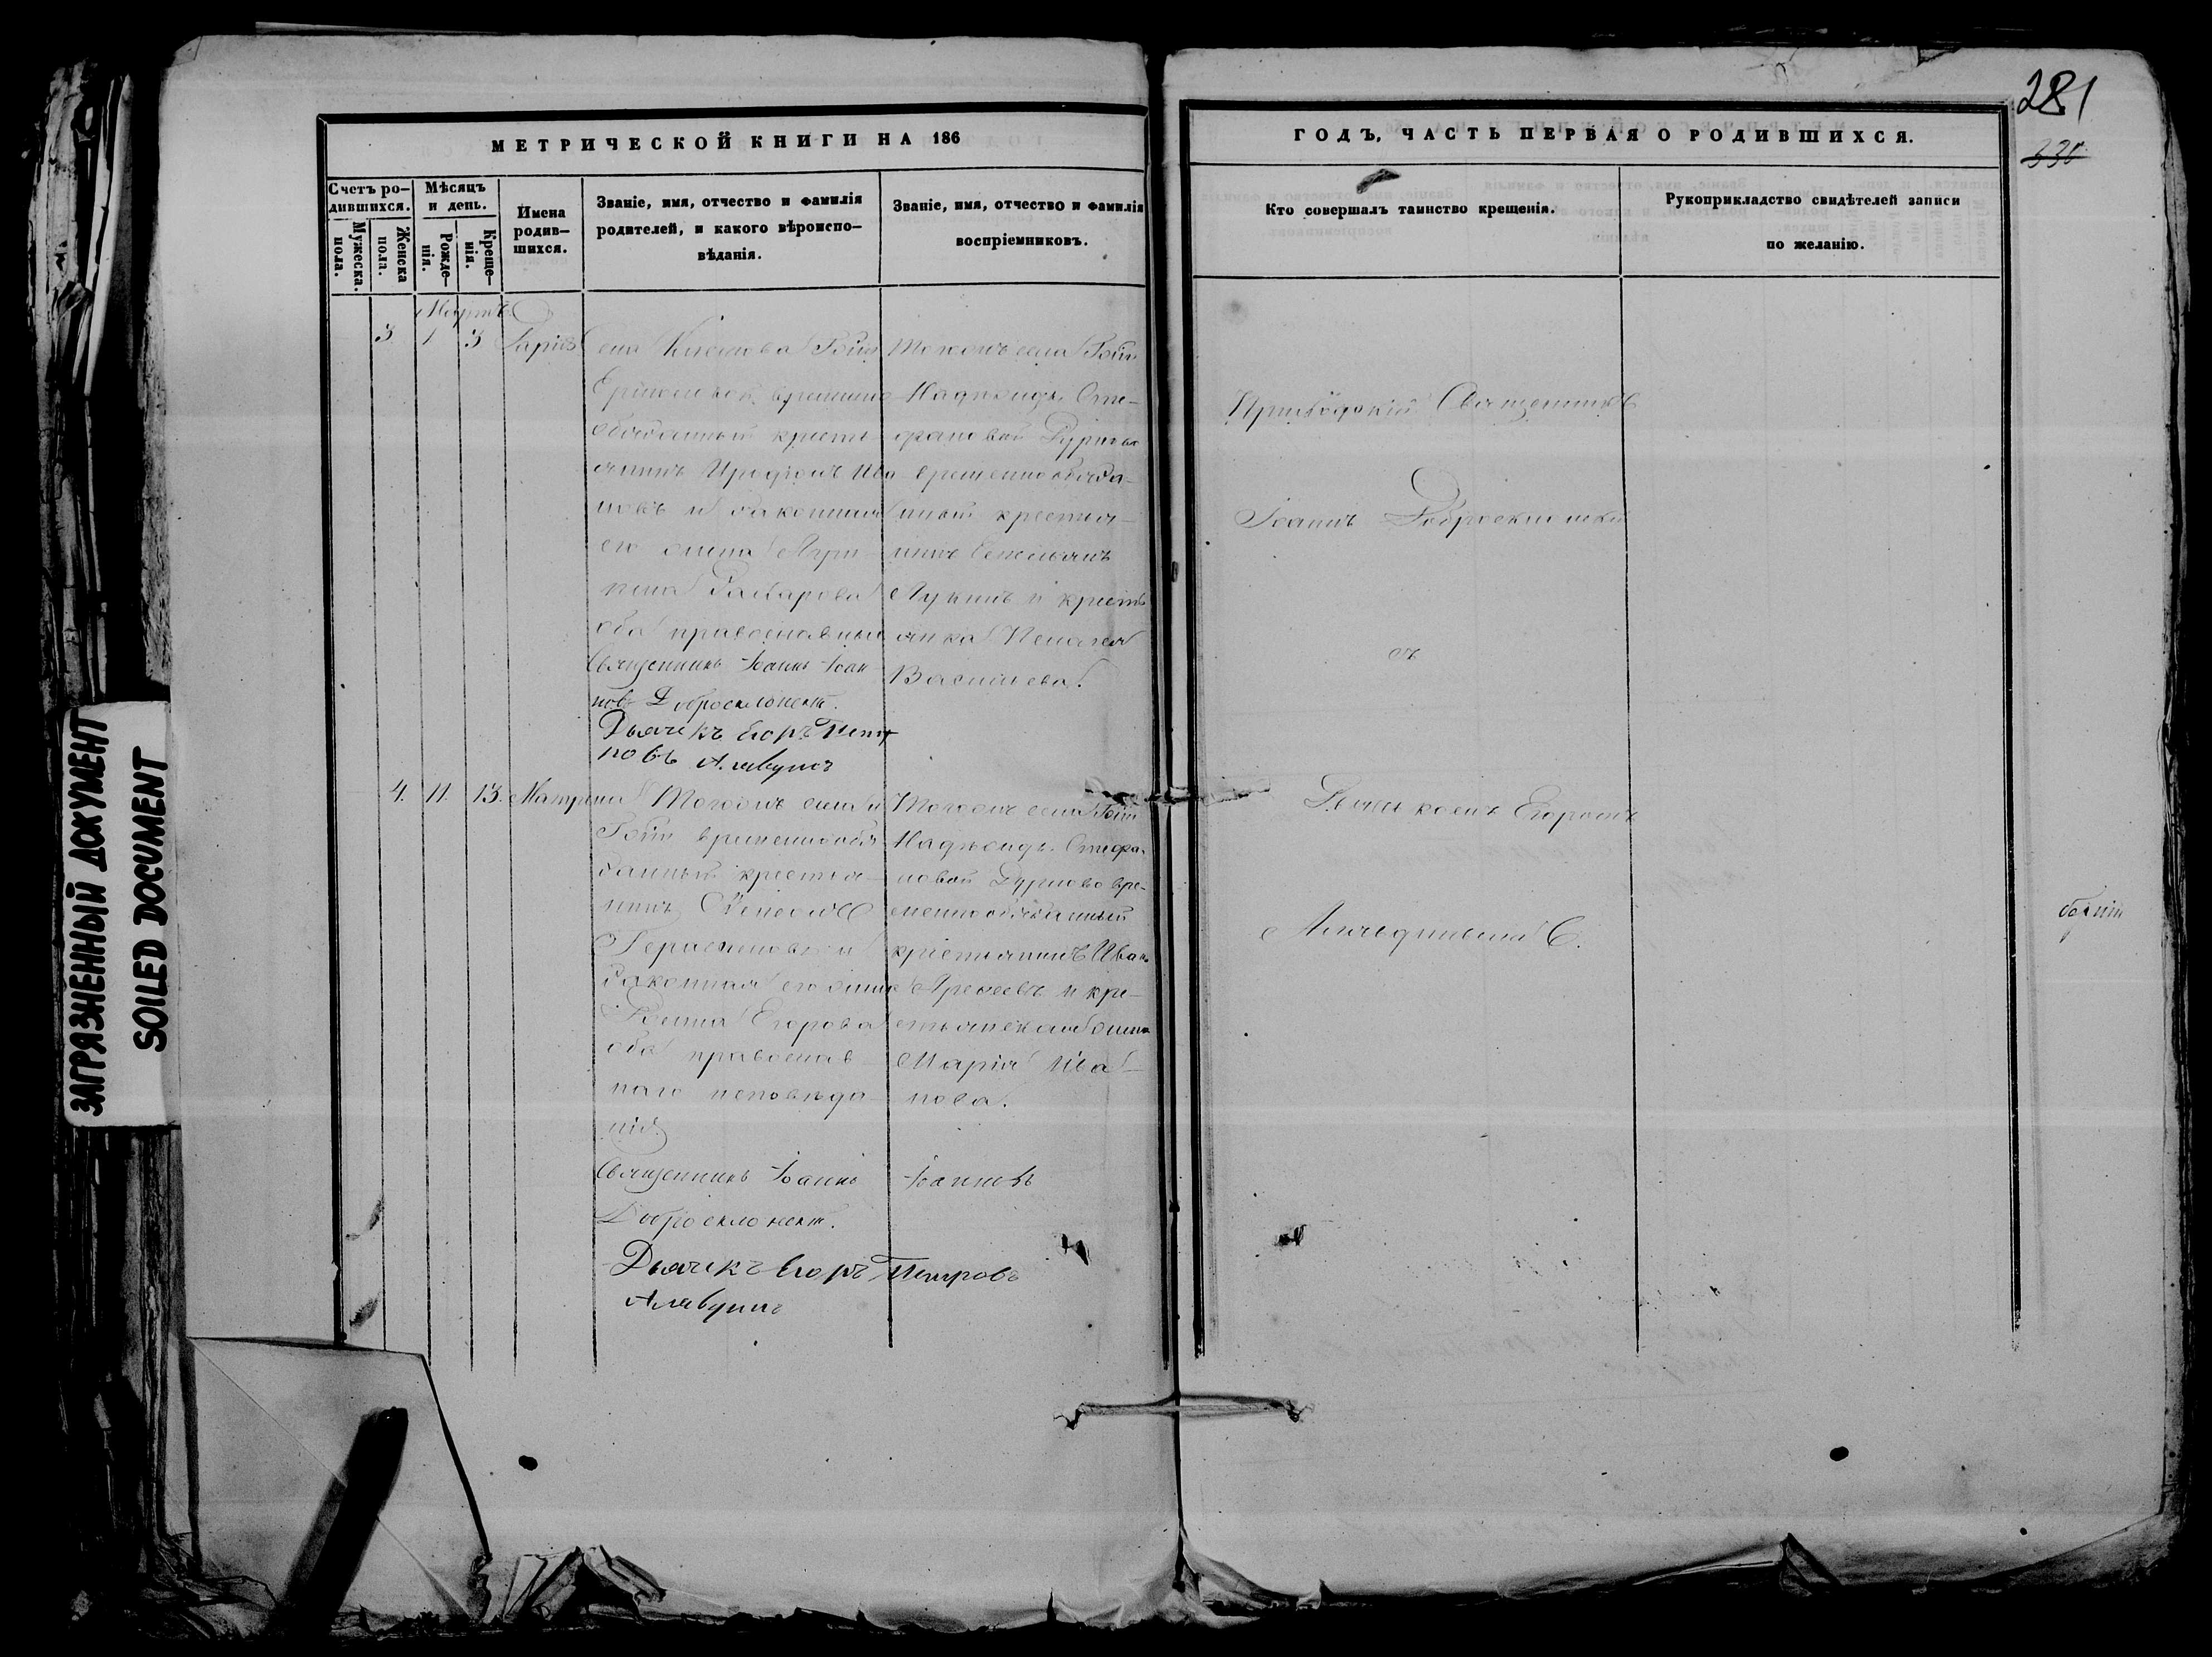 281
330
МЕТРИЧЕСКОЙ КНИГИ НА 186
ГОДЪ, ЧАСТЬ ПЕРВАЯ О РОДИВШИХСЯ.
Счетъ родившихся.
Мужеска пола.
Женска пола.
Мѣсяцъ и день.
Рожденія.
Крещенія.
Имена родившихся.
Званіе, имя, отчество и фамилія
родителей, и какого вѣроиспо-
вѣданія.
Званіе, имя, отчество и фамилія
воспріемниковъ.
Кто совершалъ таинство крещенія.
Рукоприкладство свидѣтелей записи
по желанію.
Мартъ
3 1 3 Дарія
временно
обязанный кресть
янинъ Иванъ
новъ и законная
его жена
Захарова
оба православные
Священникъ Іоаннъ Іоан
новъ Доброклонскій.
Дьячекъ Егоръ Пет
ровъ
Тогожъ села
Надежды Сте-
фановой Дурново
временнообяза-
нный крестья-
нинъ Емельянъ
Лукинъ и кресть
янка Пелагея
Васильева.
Приходскій Священникъ
Іоаннъ Доброклонскій
съ
Дьячкомъ Егоромъ
4. 11. 13. Матрона
Тогожъ села
временнообя
занный крестья-
нинъ
Герасимовъ и
законная его жена
Егорова
оба православ-
наго исповѣда-
нія.
Священникъ Іоаннъ Іоанновъ
Доброклонскій.
Дьячекъ Егоръ Петровъ
Тогожъ села
Надежды Стефа-
новой Дурново вре-
меннообязанный
крестьянинъ Иванъ
и кре-
стьянская жена
Марія Ива-
нова.
ЗАГРЯЗНЕННЫЙ ДОКУМЕНТ
SOILED DOCUMENT